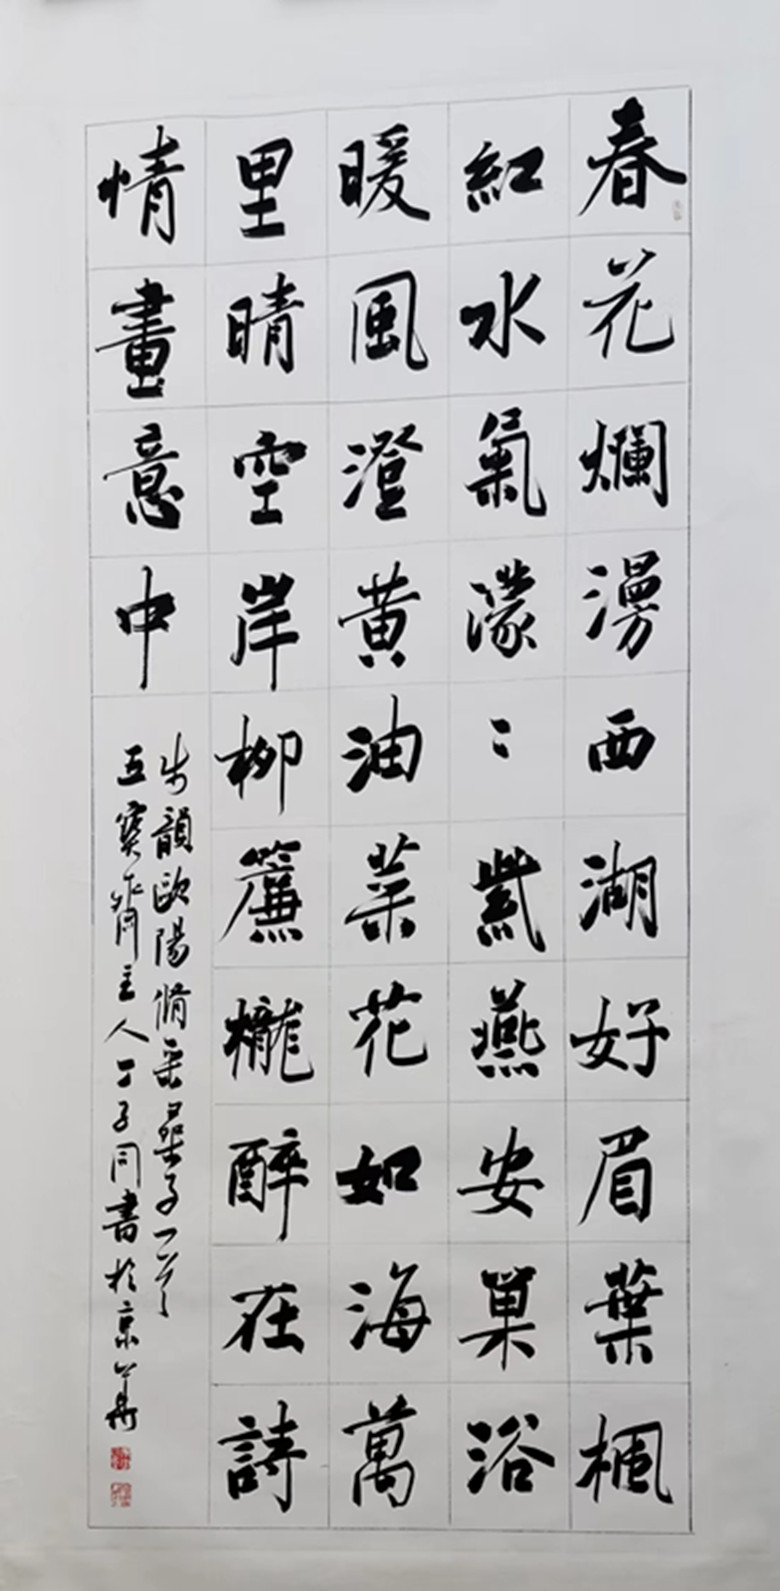 春花爛漫西湖好眉葉楓
紅水氣濛〻紫燕安巢浴
暖風澄黄油菜花如海萬
里晴空岸柳簾櫳醉在詩
情畫意中
步韻歐陽脩采桑子一首
五寶齋主人丁子同書於京華